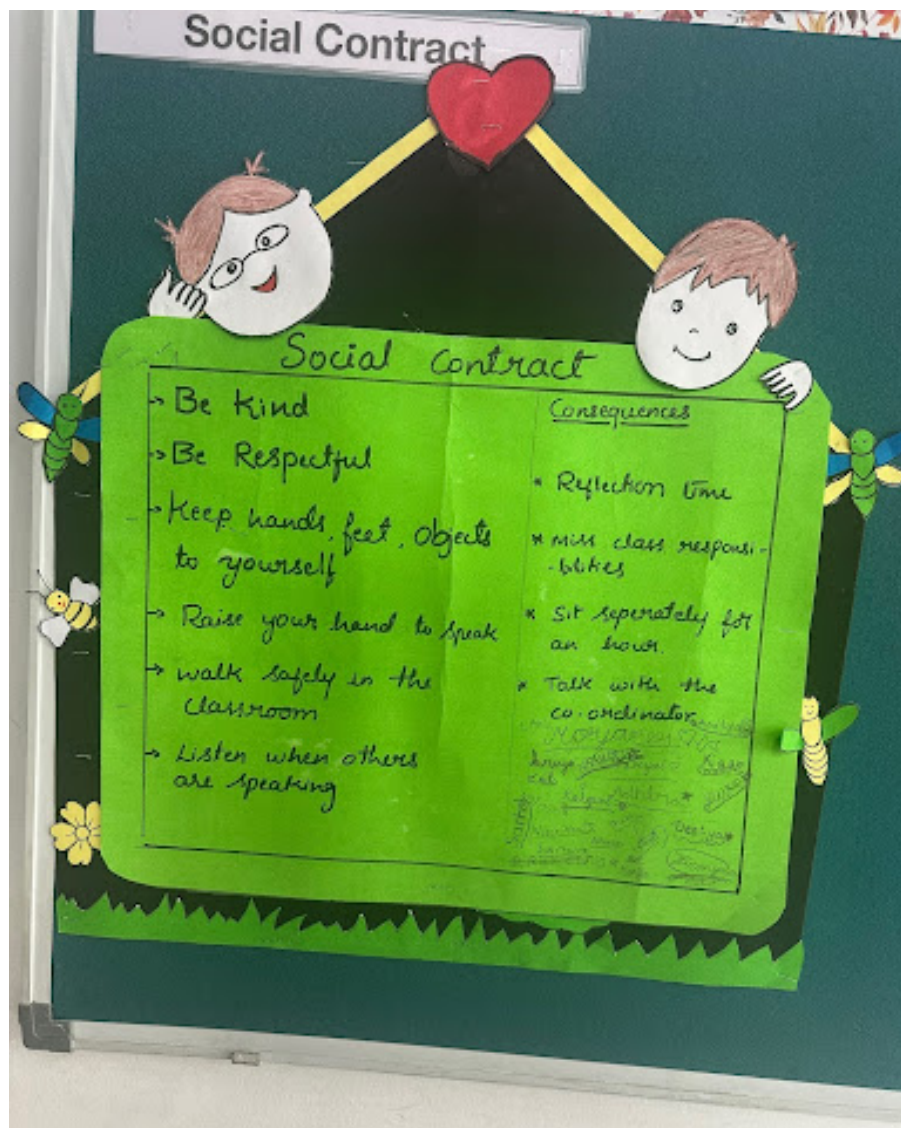 Social Contract
Social Contract
→ Be Kind
→ Be Respectful
→ Keep hands, feet, objects
to yourself
→ Raise your hand to speak
→ walk safely in the
classroom
→ Listen when others
are speaking
Consequences
* Reflection time
* Miss class responsi-
-blities
* Sit seperately for
an hour.
* Talk with the
co-ordinator